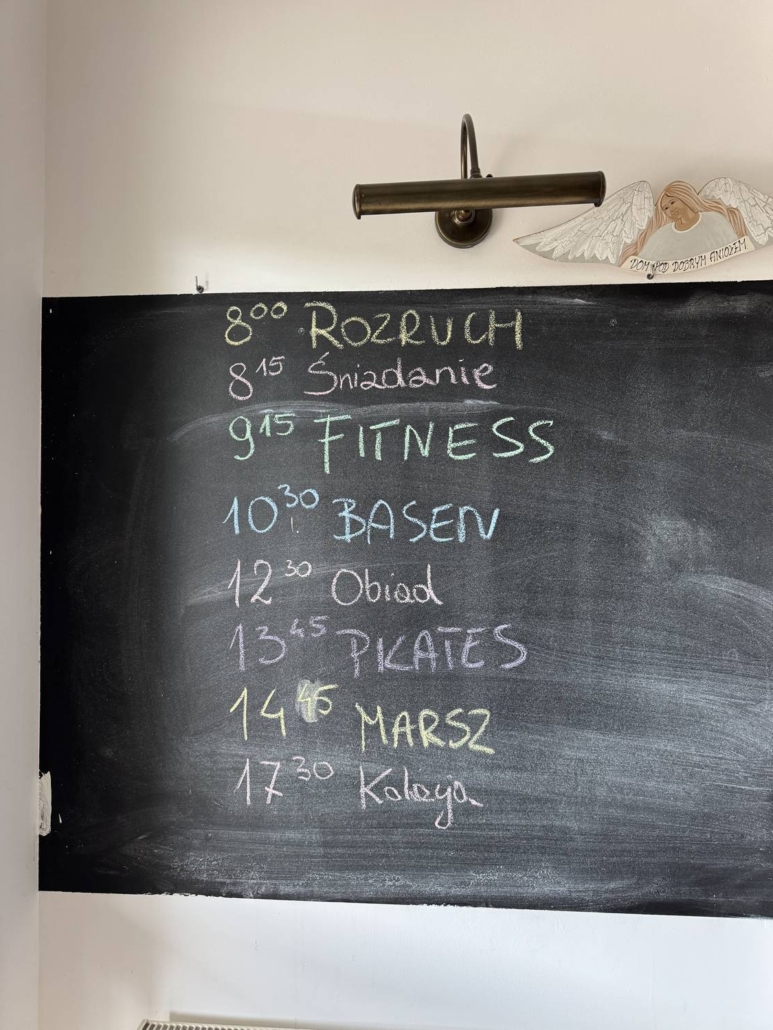 DOM POD DOBRYM ANIOŁEM
8⁰⁰ ROZRUCH
8¹⁵ Śniadanie
9¹⁵ FITNESS
10³⁰ BASEN
12³⁰ Obiad
13⁴⁵ PILATES
14⁴⁵ MARSZ
17³⁰ Kolacja